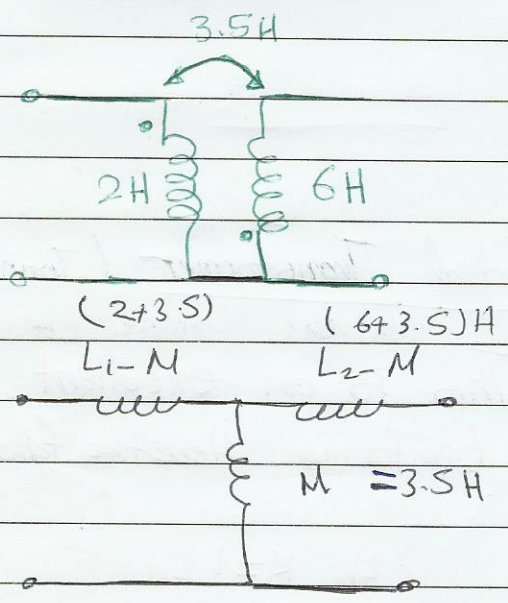 3.5H
2H 6H
(2+3.5) (6+3.5)H
L1-M L2-M
M =3.5H